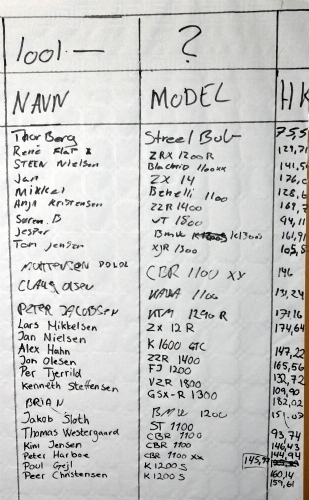 1001.— ?
NAVN MODEL HK
Thor Berg Street Bob 75,5
René Flat X ZRX 1200R 129,71
STEEN Nielsen Blackbird 1100xx 141,5
Jan ZX 14 176,0
Mikkel Benelli 1100 128,6
Anja Kristensen ZZR 1400 169,7
Søren B VT 1800 94,11
Jesper BMW K1300S 161,9
Tom Jensen XJR 1300 105,5
MORTENSEN CBR 1100 XX 146
CLAUS OLSEN KAWA 1100 131,24
PETER JACOBSEN KTM 1290 R 171,16
Lars Mikkelsen ZX 12 R 174,64
Jan Nielsen
Alex Hahn K1600 GTC 147,22
Jon Olesen ZZR 1400 165,56
Per Tjerrild FJ 1200 132,72
Kenneth Steffensen VZR 1800 109,90
GSX-R 1300 182,02
BRIAN BMW 1200
Jakob Sloth ST 1100 93,74
Thomas Westergaard CBR 1100 146,43
Kim Jensen CBR 1100 144,94
Peter Harboe CBR 1100 XX 145,99
Poul Gejl K1200S 160,14
Peer Christensen K1200S 159,61